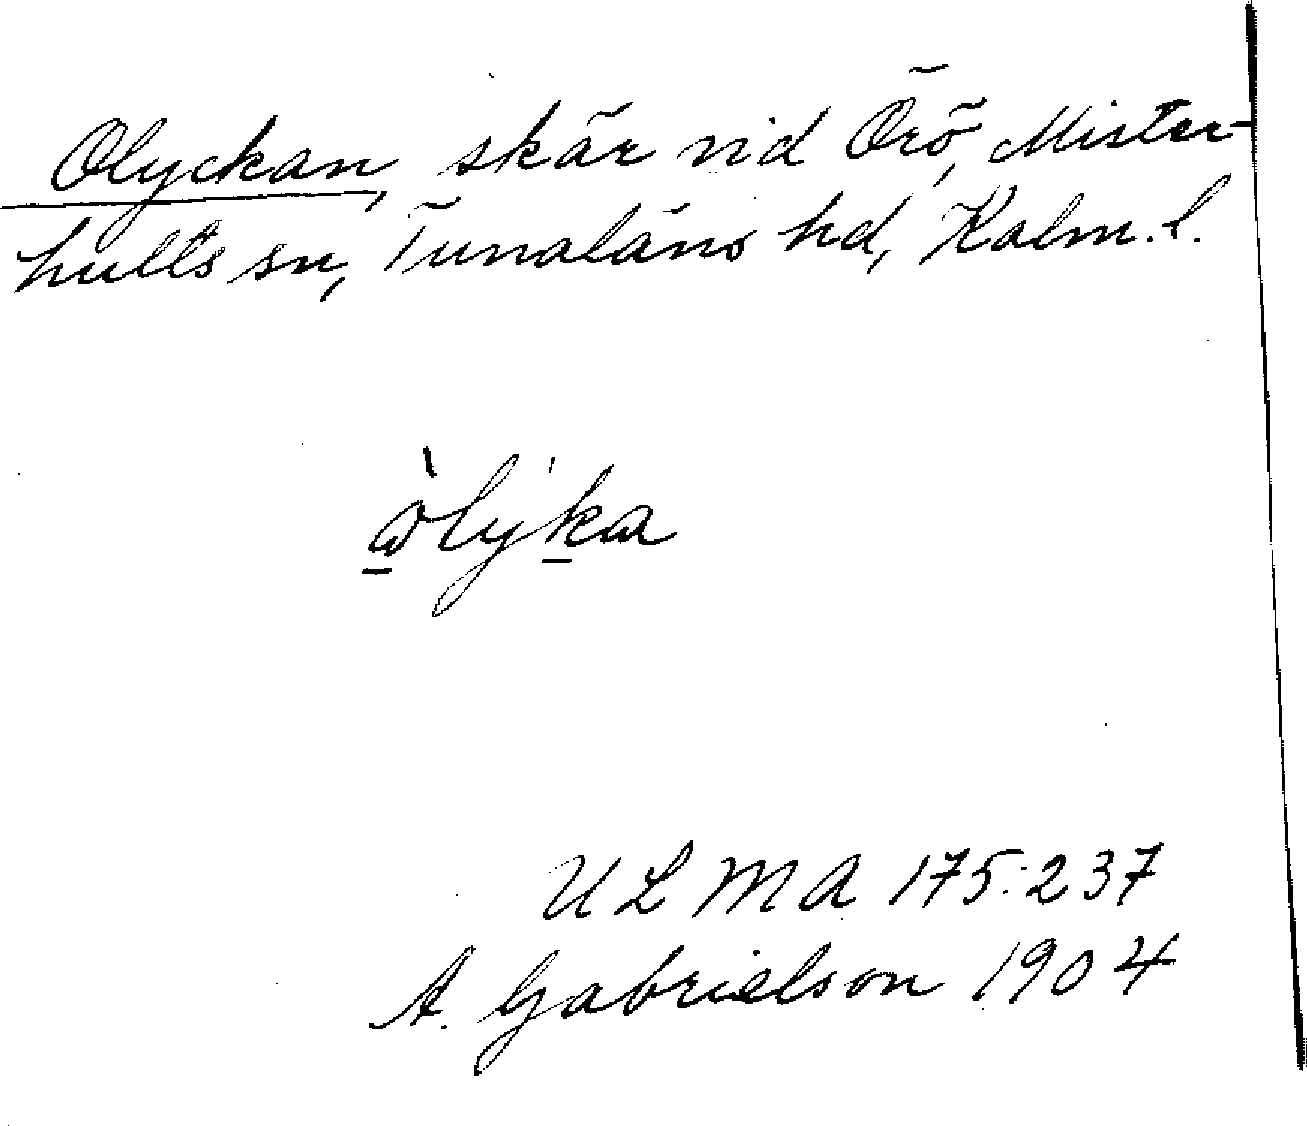 Olyckan, skär vid Örö, Mister-
hults sn, Tunaläns hd, Kalm. l.
ULMA 175:237
A. Gabrielson 1904